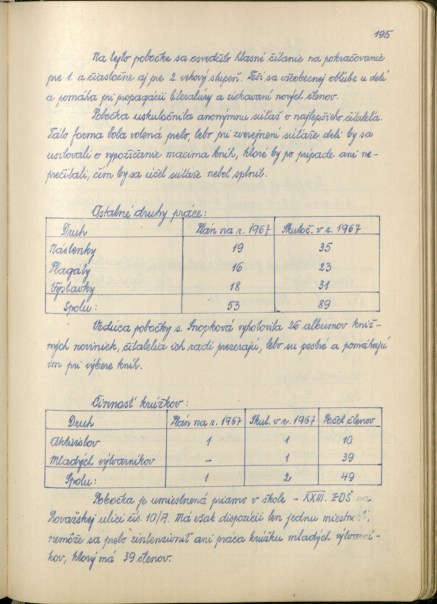 195
Na tejto pobočke sa osvedčilo hlasné čítanie na pokračovanie
pre 1. a čiastočne aj pre 2 vekový stupeň. Teší sa všeobecnej obľube u detí
a pomáha pri propagácii literatúry a získavaní nových členov.
Pobočka uskutočnila anonymnú súťaž o najlepšieho čitateľa.
Táto forma bola volená preto, lebo pri zverejnení súťaže deti by sa
usilovali o vypožičanie maxima kníh, ktoré by po prípade ani ne-
prečítali, čím by sa účel súťaže nebol splnil.
Ostatné druhy práce:
Druh Plán na r. 1967 Skutoč. v r. 1967
Nástenky 19 35
Plagáty 16 23
Výstavky 18 31
Spolu: 53 89
Vedúca pobočky s. Snopková vyhotovila 26 albumov kniž-
ných noviniek, čitatelia ich radi prezerajú, lebo sú pestré a pomáhajú
im pri výbere kníh.
Činnosť krúžkov:
Druh Plán na r. 1967 Skut. v r. 1967 Počet členov
Aktivistov 1 1 10
Mladých výtvarníkov – 1 39
Spolu: 1 2 49
Pobočka je umiestnená priamo v škole - XXIII. ZDŠ na
Považskej ulici čís. 10/A. Má však dispozícii len jednu miestnosť,
nemôže sa preto zintenzívniť ani práca krúžku mladých výtvarní-
kov, ktorý má 39 členov.